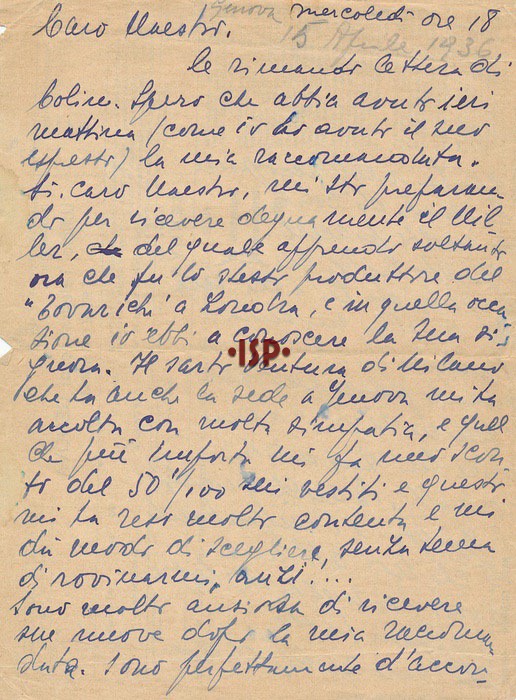 Genova mercoledì ore 18
15 Aprile 1936
Caro Maestro.
le rimando lettera di
Colin. Spero che abbia avuto ieri
mattina (come io ho avuto il suo
espresso) la mia raccomandata.
Si. caro Maestro, mi sto preparan
do per ricevere degnamente il Mil
ler, del quale apprendo soltanto
ora che fu lo stesso produttore del
"Tovarich" a Londra, e in quella occa
sione io ebbi a conoscere la sua si=
gnora. Il sarto Ventura di Milano
che ha anche la sede a Genova mi ha
accolta con molta simpatia, e quel
che più importa mi fa uno scon
to del 50%00 sui vestiti e questo
mi ha reso molto contenta e mi
dà modo di scegliere, senza tema
di rovinarmi, anzi!...
Sono molto ansiosa di ricevere
sue nuove dopo la mia raccoman
data. Sono perfettamente d'accor=
•ISP•